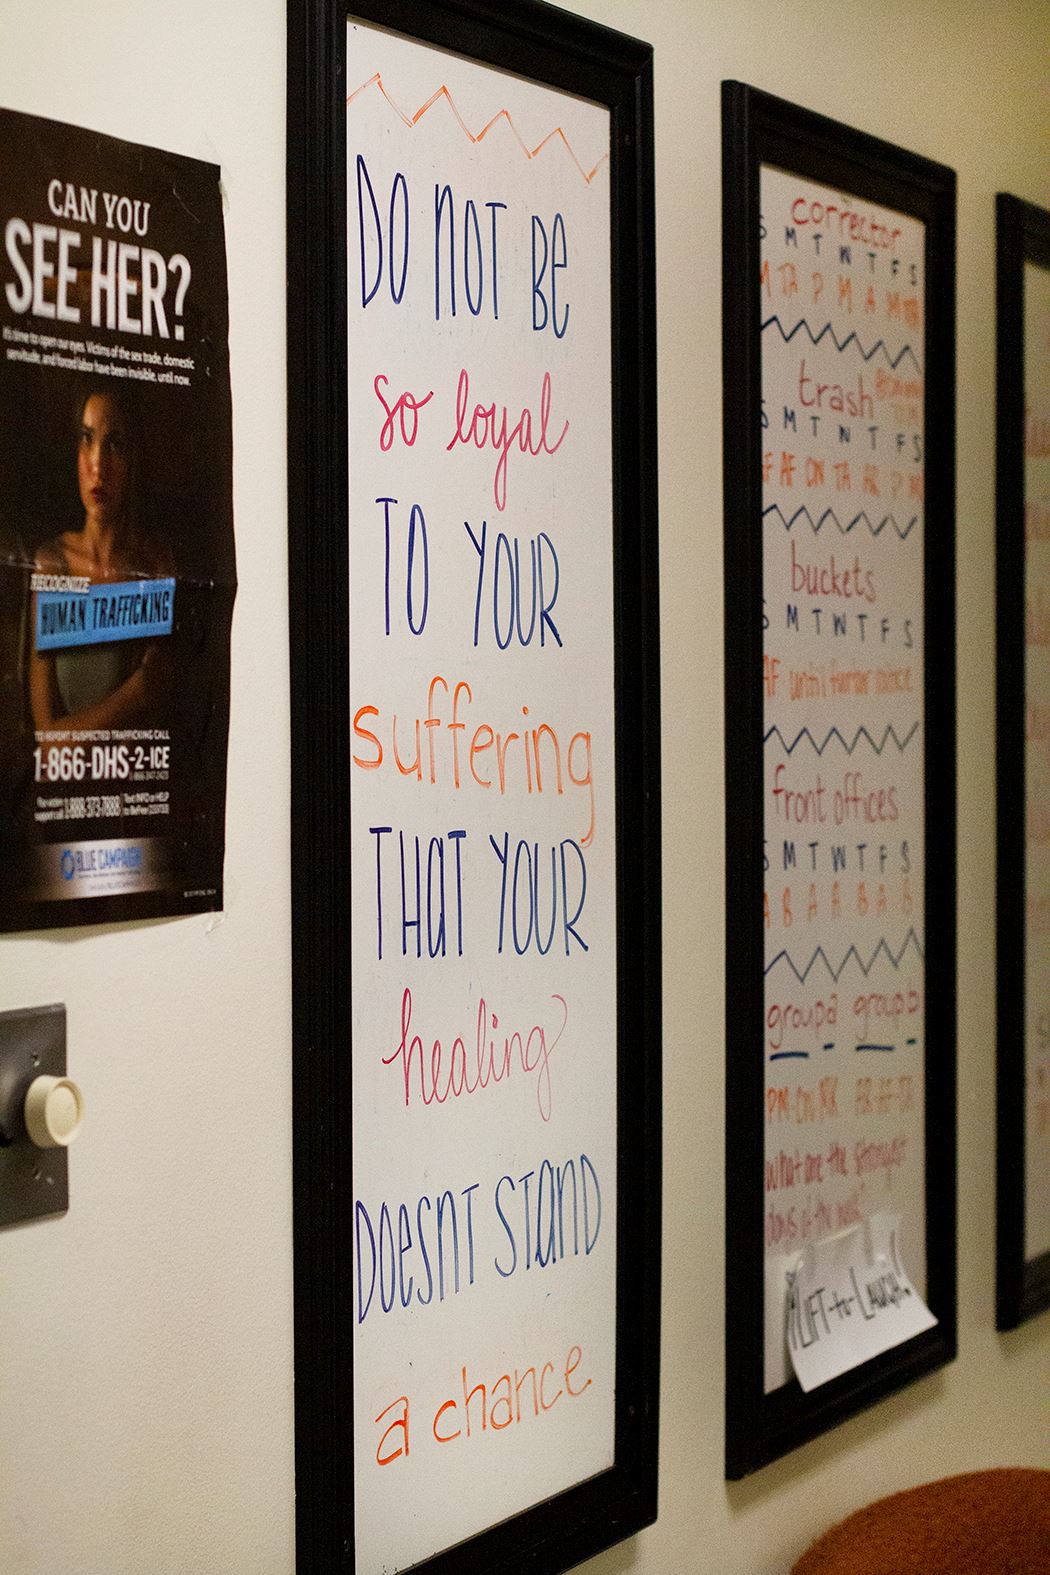 CAN YOU
SEE HER?
It's time to open our eyes. Victims of the sex trade, domestic
servitude, and forced labor have been invisible, until now.
RECOGNIZE
HUMAN TRAFFICKING
TO REPORT SUSPECTED TRAFFICKING CALL
1-866-DHS-2-ICE
1-866-347-2423
1-888-373-7888
BLUE CAMPAIGN
DO NOT BE
so loyal
TO YOUR
suffering
THAT YOUR
healing
DOESNT STAND
a chance
corrector
S M T W T F S
M TA P M A M
trash
S M T W T F S
AF CN TA AR P M
buckets
S M T W T F S
AF until further notice
front offices
S M T W T F S
A B A A B A B
group a group b
what are the strongest
days of the week?
LIFT-to-LAUGH!